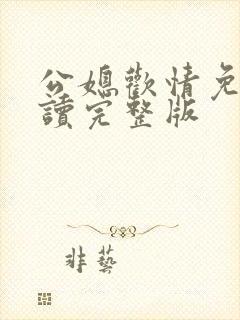 公媳歡情免
讀完整版
非藝